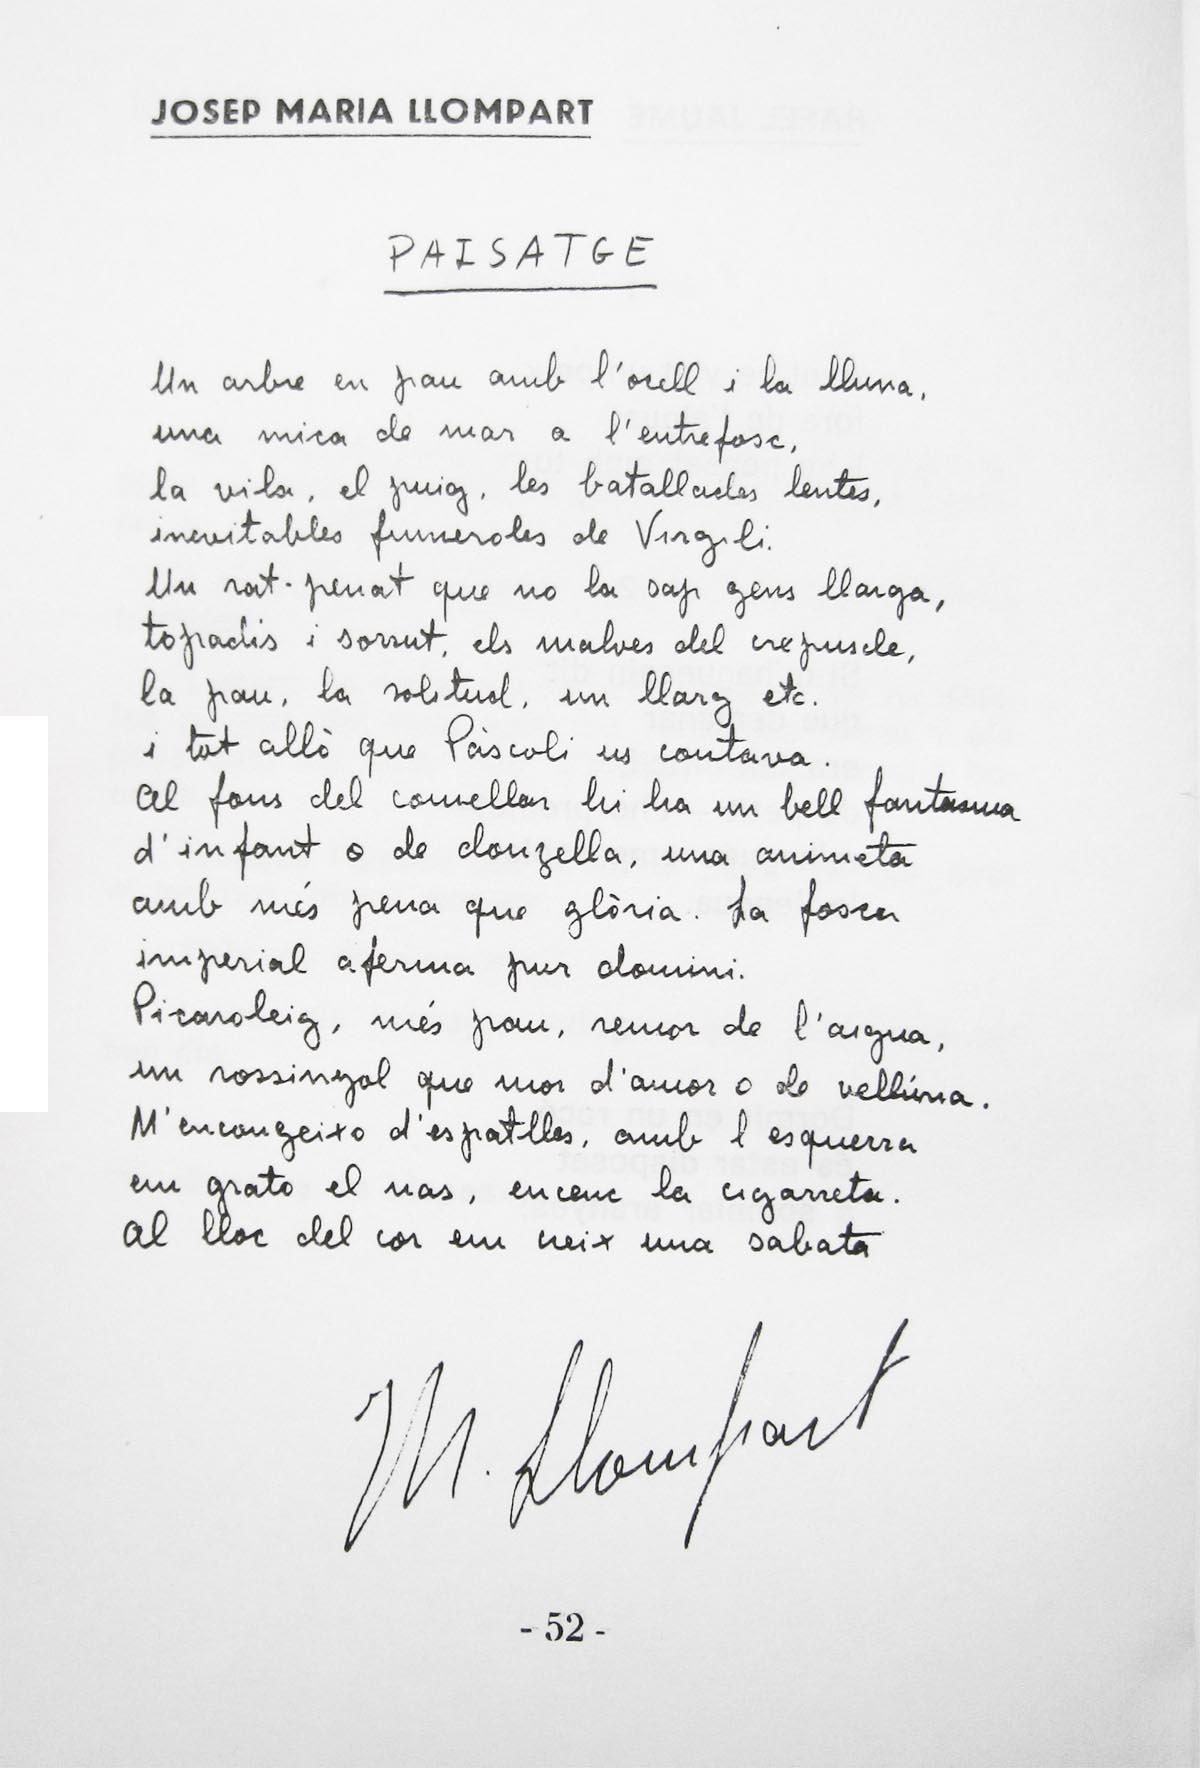 JOSEP MARIA LLOMPART
PAISATGE
Un arbre en pau amb l'ocell i la lluna,
una mica de mar a l'entrefosc,
la vila, el puig, les batallades lentes,
inevitables fumeroles de Virgili.
Un rat-penat que no la sap gens llarga,
topadís i sorrut, els malves del crepuscle,
la pau, la solitud, un llarg etc.
i tot allò que Pàscoli us contava.
Al fons del comellar hi ha un bell fantasma
d'infant o de donzella, una animeta
amb més pena que glòria. La fosca
imperial aferma pur domini.
Picaroleig, més pau, remor de l'aigua,
un rossinyol que mor d'amor o de vellúria.
M'encongeixo d'espatlles, amb l'esquerra
em grato el nas, encenc la cigarreta.
Al lloc del cor em neix una sabata
M. Llompart
- 52 -